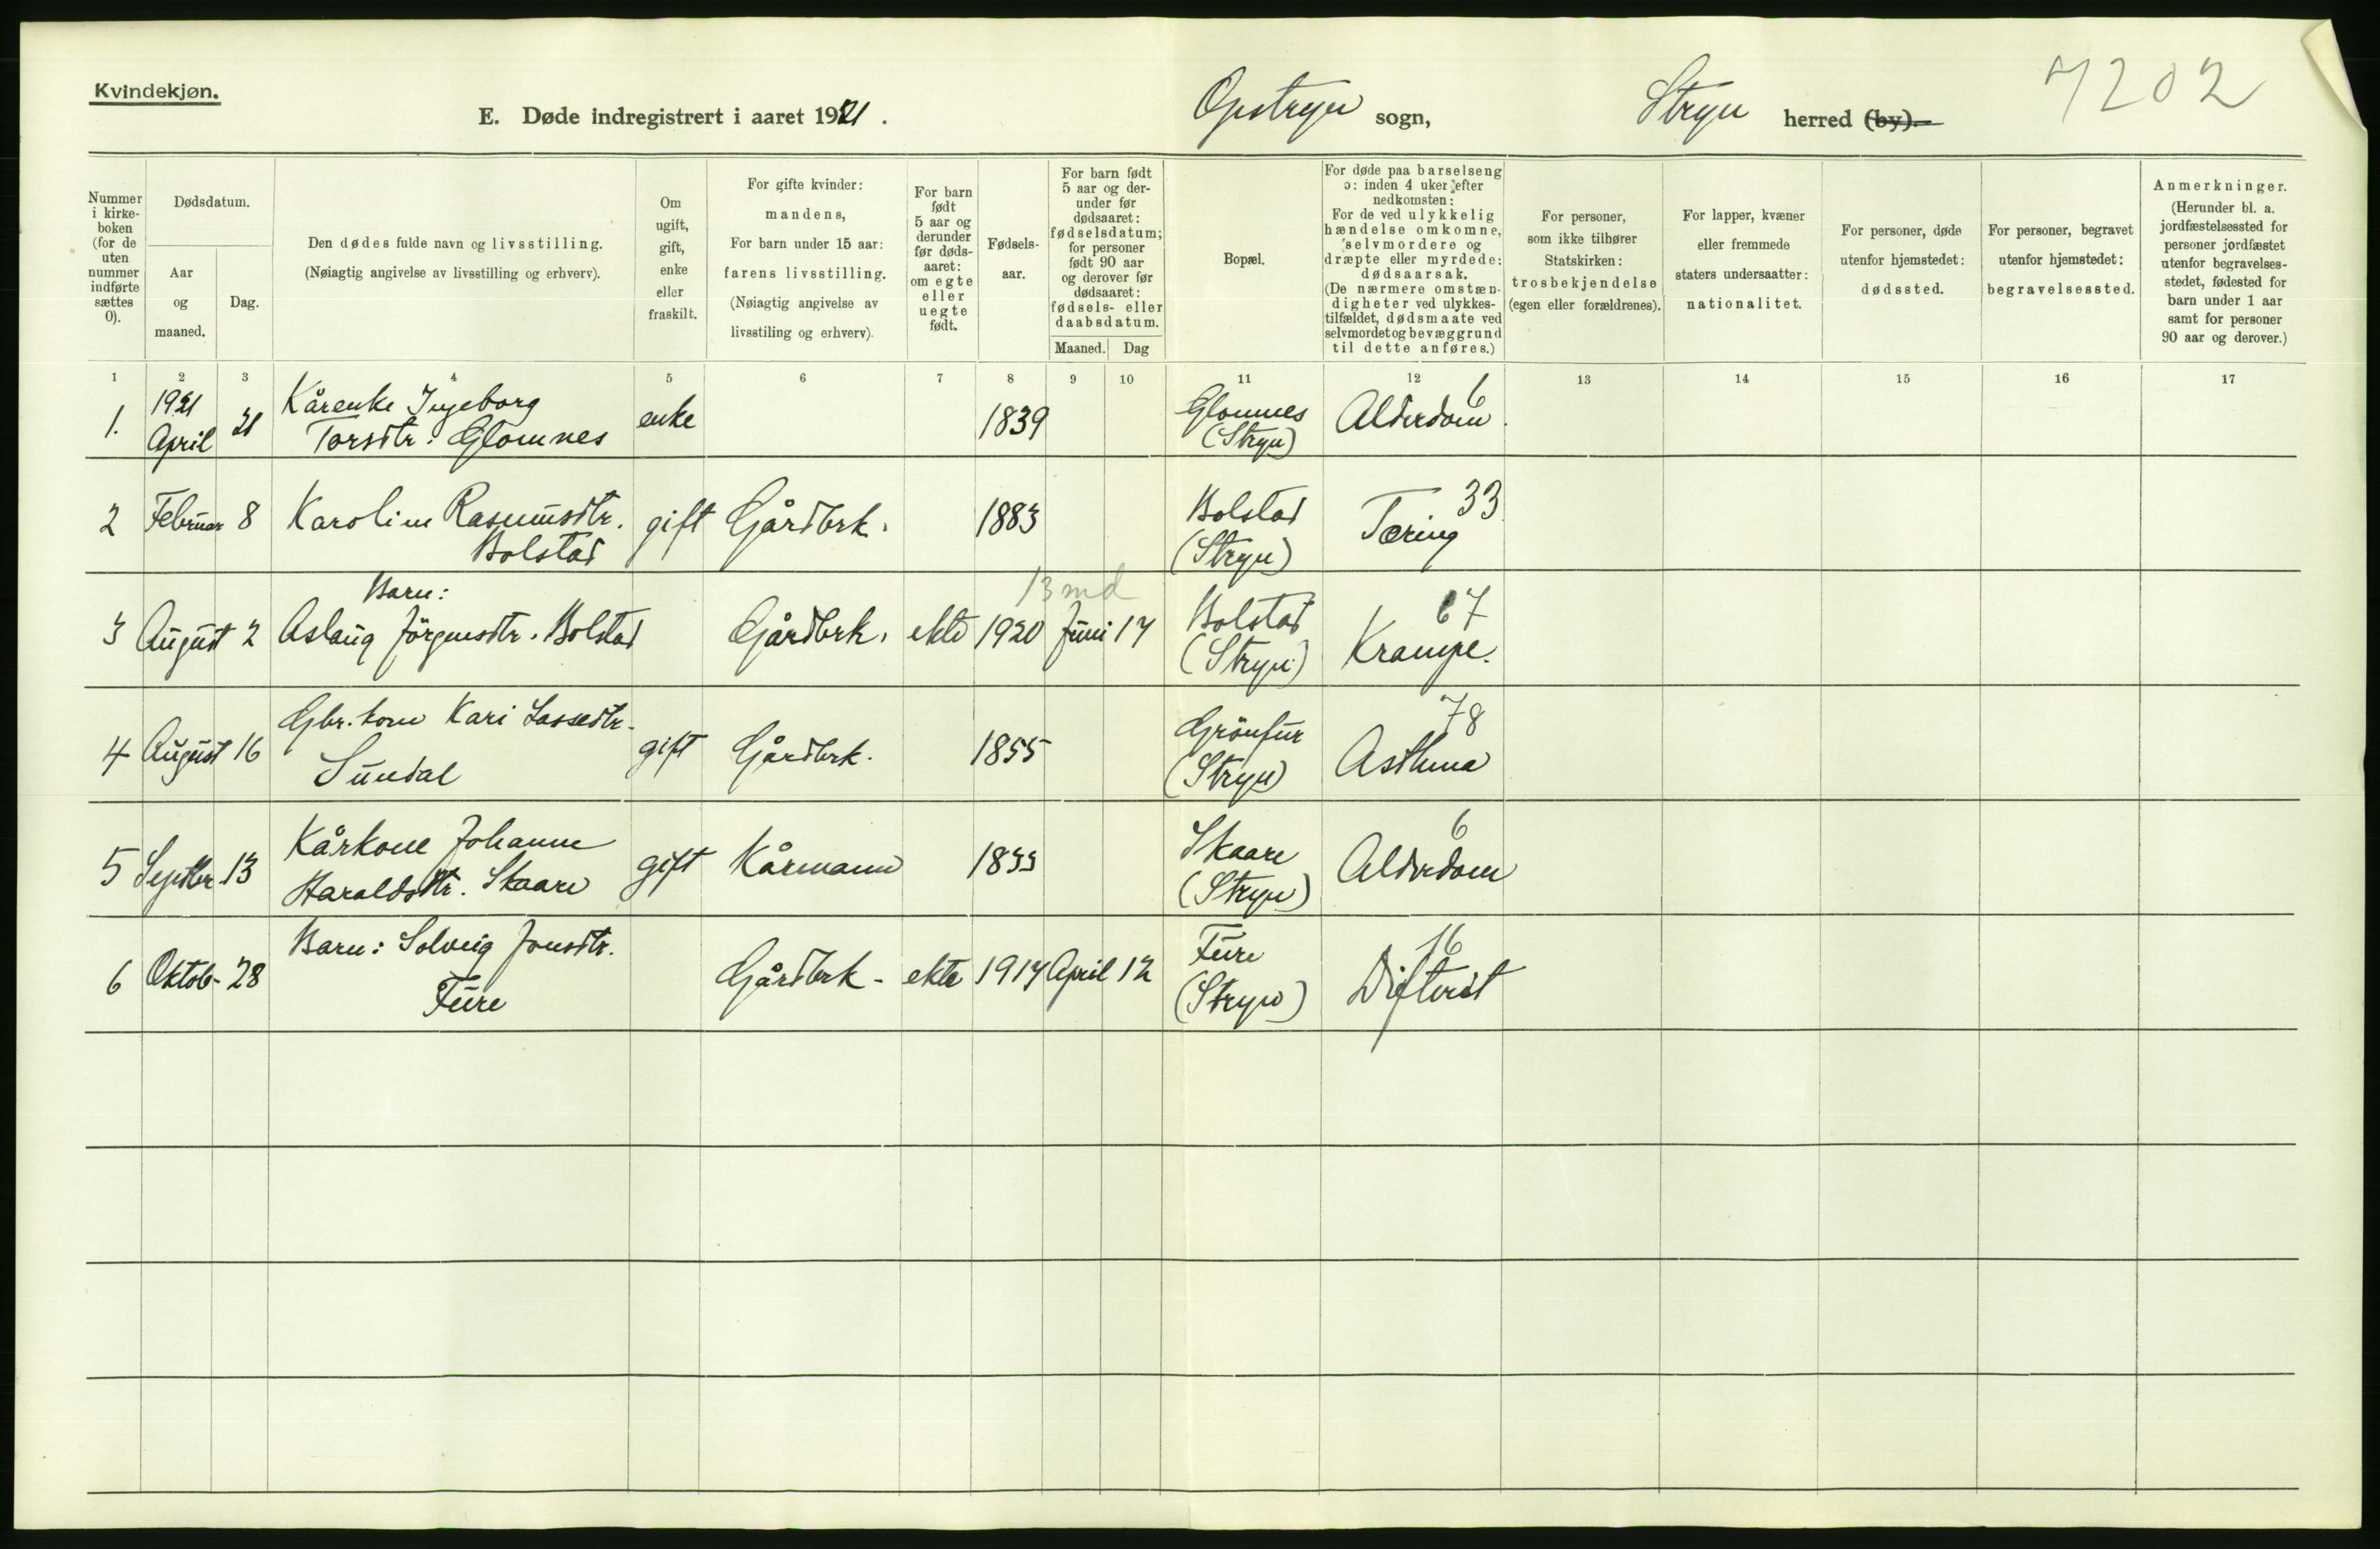 Kvindekjøn.
E. Døde indregistrert i aaret 1921.
Opstryn sogn,
Stryn herred (by).
7202
Nummer i kirke-boken (for de uten nummer indførte sættes 0).
Dødsdatum.
Aar og maaned.
Dag.
Den dødes fulde navn og livsstilling.
(Nøiagtig angivelse av livsstilling og erhverv).
Om ugift, gift, enke eller fraskilt.
For gifte kvinder:
mandens,
For barn under 15 aar:
farens livsstilling.
(Nøiagtig angivelse av
livsstiling og erhverv).
For barn født 5 aar og derunder før døds-aaret: om egte eller uegte født.
Fødsels-aar.
For barn født 5 aar og der-under før dødsaaret: fødselsdatum; for personer født 90 aar og derover før dødsaaret: fødsels- eller daabsdatum.
Maaned. Dag
Bopæl.
For døde paa barselseng
ɔ: inden 4 uker efter
nedkomsten:
For de ved ulykkelig
hændelse omkomne,
selvmordere og
dræpte eller myrdede:
dødsaarsak.
(De nærmere omstæn-
digheter ved ulykkes-
tilfældet, dødsmaate ved
selvmordet og bevæggrund
til dette anføres.)
For personer,
som ikke tilhører
Statskirken:
trosbekjendelse
(egen eller forældrenes).
For lapper, kvæner
eller fremmede
staters undersaatter:
nationalitet.
For personer, døde
utenfor hjemstedet:
dødssted.
For personer, begravet
utenfor hjemstedet:
begravelsessted.
Anmerkninger.
(Herunder bl. a.
jordfæstelsessted for
personer jordfæstet
utenfor begravelses-
stedet, fødested for
barn under 1 aar
samt for personer
90 aar og derover.)
1 2 3 4 5 6 7 8 9 10 11 12 13 14 15 16 17
1. 1921 April 21 Kårenke Ingeborg Torsdtr. Glomnes enke 1839 Glomnes (Stryn) Alderdom. 6
2 Februar 8 Karoline Rasmusdtr. Bolstad gift Gårdbrk. 1883 Bolstad (Stryn) Tæring 33
3 August 2 Barn: Aslaug Jörgensdtr. Bolstad Gårdbrk. ekte 1920 Juni 17 13 md Bolstad (Stryn) Krampe. 67
4 August 16 Gbr. kone Kari Lassedtr. Sundal gift Gårdbrk. 1855 Grönfur (Stryn) Asthma 78
5 Septbr 13 Kårkone Johanne Haraldsdtr. Skaare gift Kårmann 1833 Skaare (Stryn) Alderdom 6
6 Oktob- 28 Barn: Solveig Jonsdtr. Fure Gårdbrk - ekte 1917 April 12 Fure (Stryn) Difterit 16